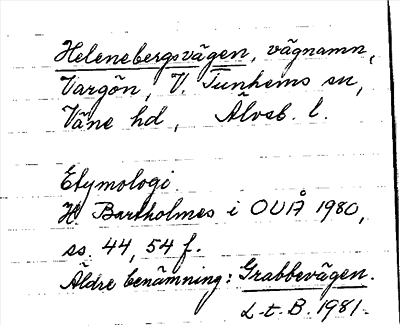 Helenebergsvägen, vägnamn,
Vargön, V. Tunhems sn,
Väne hd, Älvsb. l.
Etymologi
H Bartholmes i OUÅ 1980,
ss. 44, 54 f.
Äldre benämning: Grabbevägen.
L-t. B. 1981.